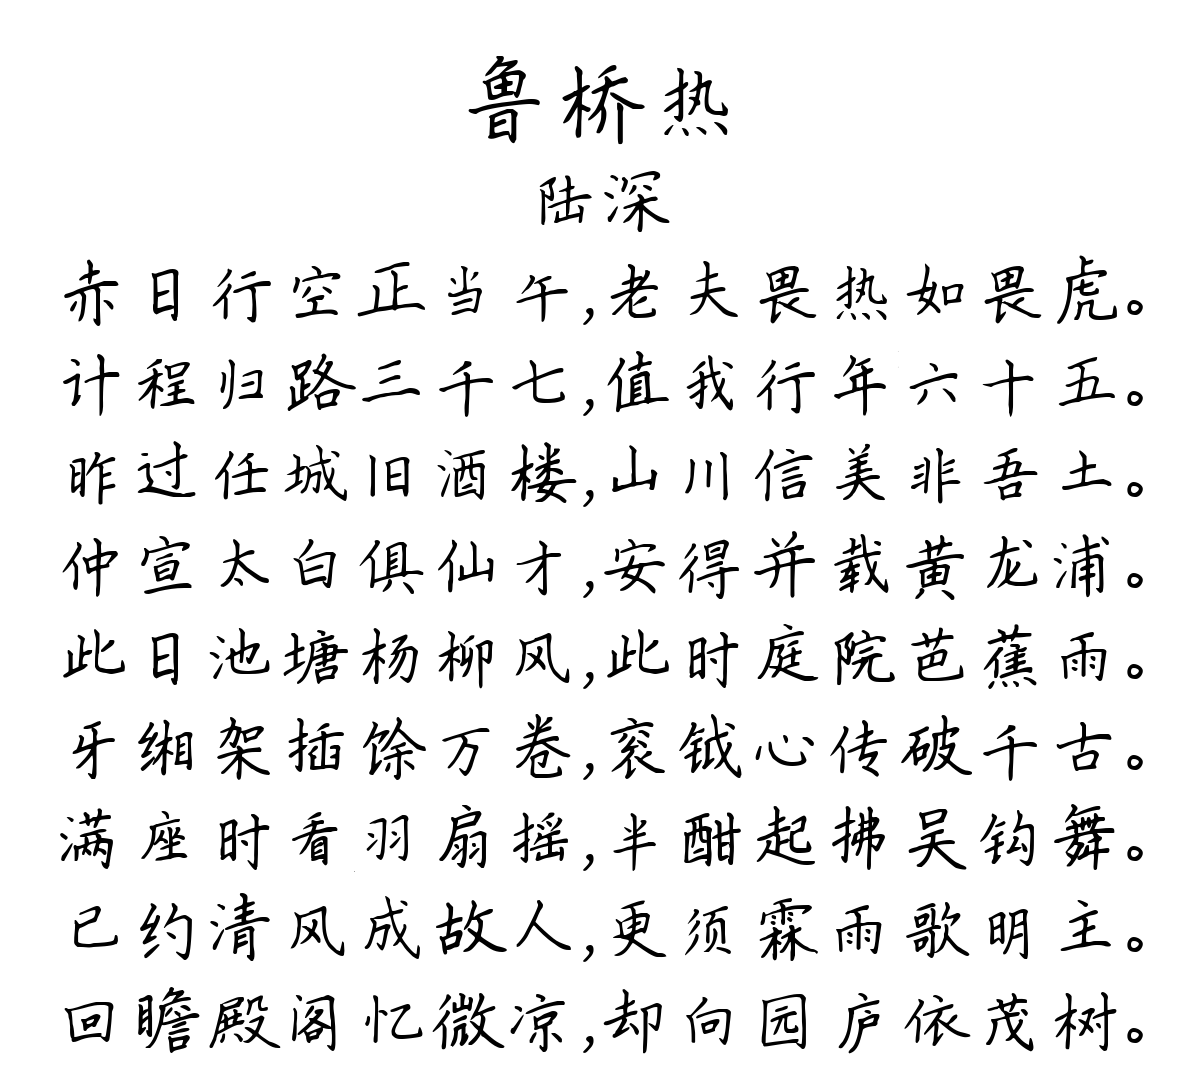 鲁桥热
陆深
赤日行空正当午,老夫畏热如畏虎。
计程归路三千七,值我行年六十五。
昨过任城旧酒楼,山川信美非吾土。
仲宣太白俱仙才,安得并载黄龙浦。
此日池塘杨柳风,此时庭院芭蕉雨。
牙缃架插馀万卷,衮钺心传破千古。
满座时看羽扇摇,半酣起拂吴钩舞。
已约清风成故人,更须霖雨歌明主。
回瞻殿阁忆微凉,却向园庐依茂树。